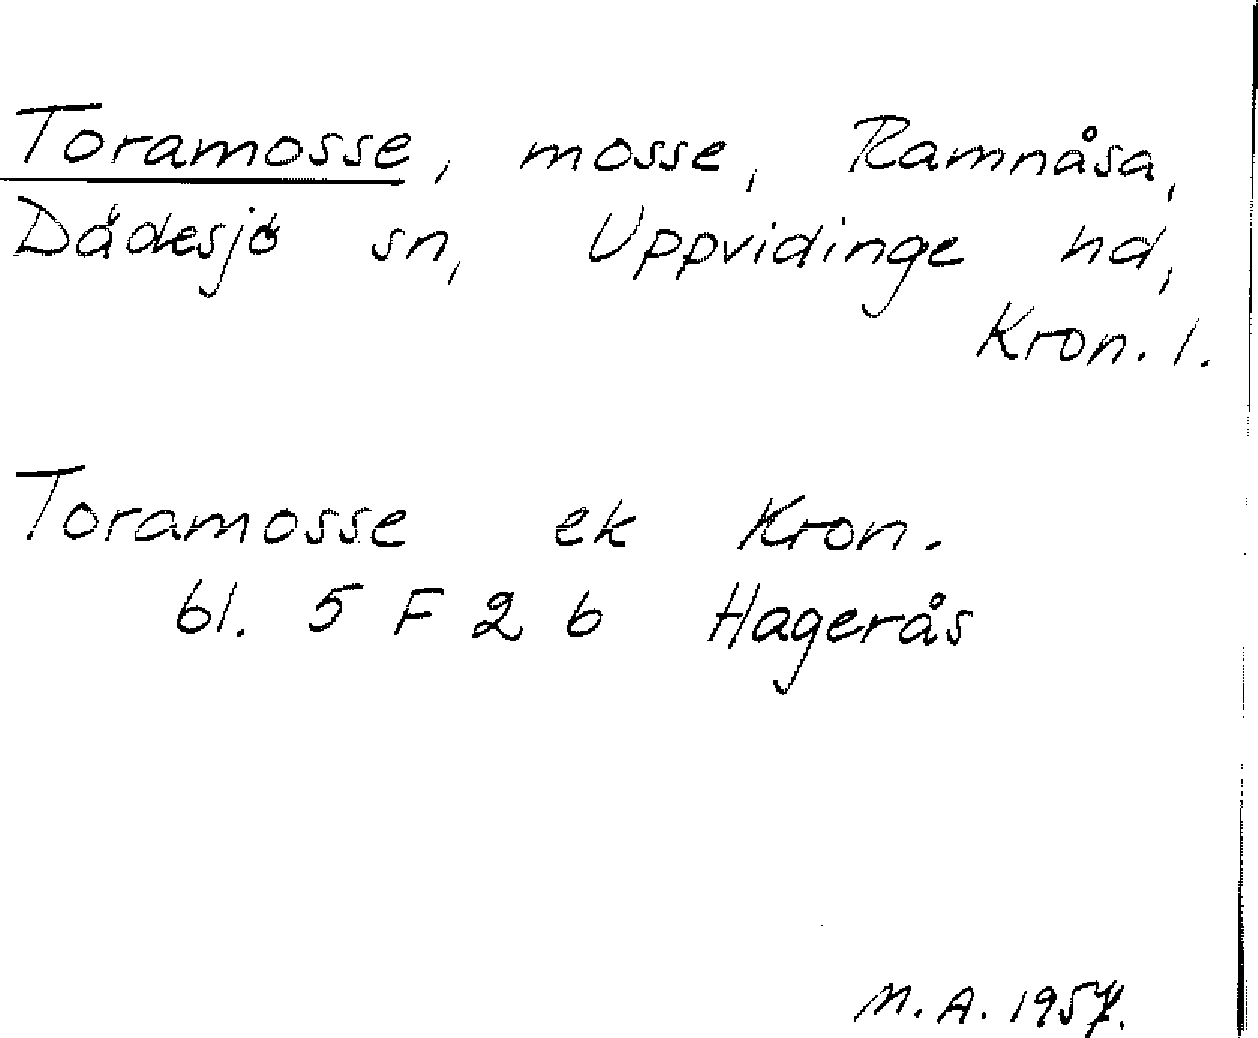 Toramosse, mosse, Ramnåsa,
Dädesjö sn, Uppvidinge hd,
Kron. l.
Toramosse ek Kron.
bl. 5 F 2 b Hagerås
M.A. 1957.